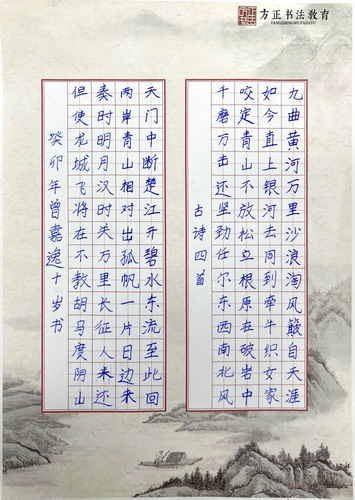 方正书法教育
FANGZHENGSHUFAJIAOYU
九曲黄河万里沙浪淘风簸自天涯
如今直上银河去同到牵牛织女家
咬定青山不放松立根原在破岩中
千磨万击还坚劲任尔东西南北风
古诗四首
天门中断楚江开碧水东流至此回
两岸青山相对出孤帆一片日边来
秦时明月汉时关万里长征人未还
但使龙城飞将在不教胡马度阴山
癸卯年曾嘉逸十岁书